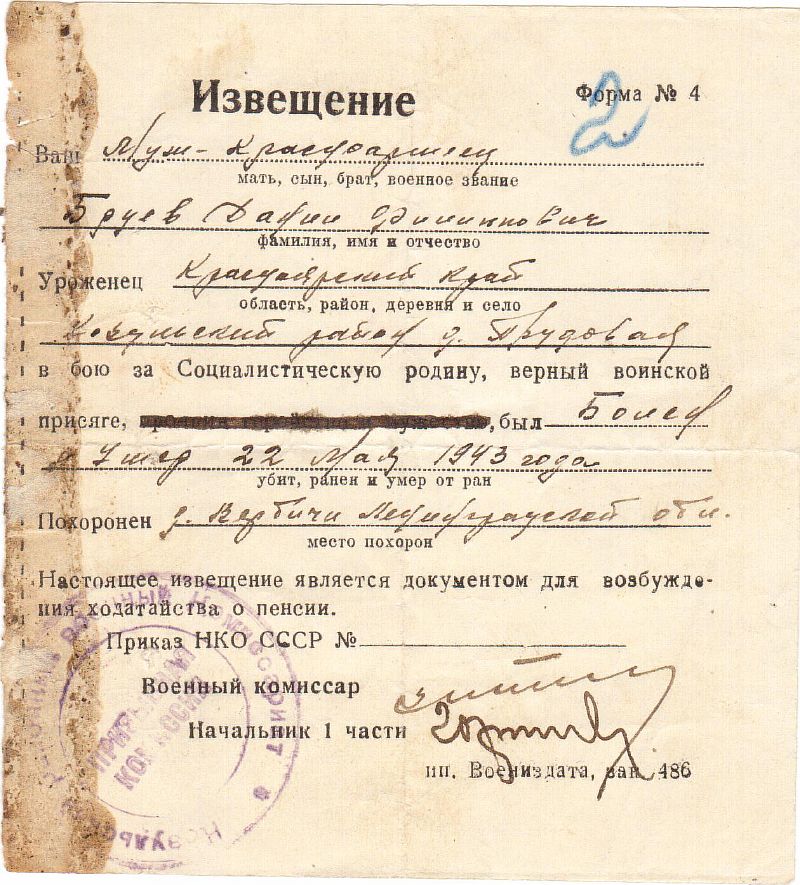 Извещение
Форма № 4
2
Ваш Муж - Красноармеец
мать, сын, брат, военное звание
Бруев Данил Филиппович
фамилия, имя и отчество
Уроженец Красноярский край
область, район, деревня и село
Козульский район д. Трудовая
в бою за Социалистическую родину, верный воинской
присяге, проявив геройство и мужество, был Болел
и умер 22 Мая 1943 года
убит, ранен и умер от ран
Похоронен д. Вербичи Ленинградской обл.
место похорон
Настоящее извещение является документом для возбужде-
ния ходатайства о пенсии.
Приказ НКО СССР №
Военный комиссар
Начальник 1 части
ип. Воениздата, зак. 486
Козульский Районный Военный Комиссариат